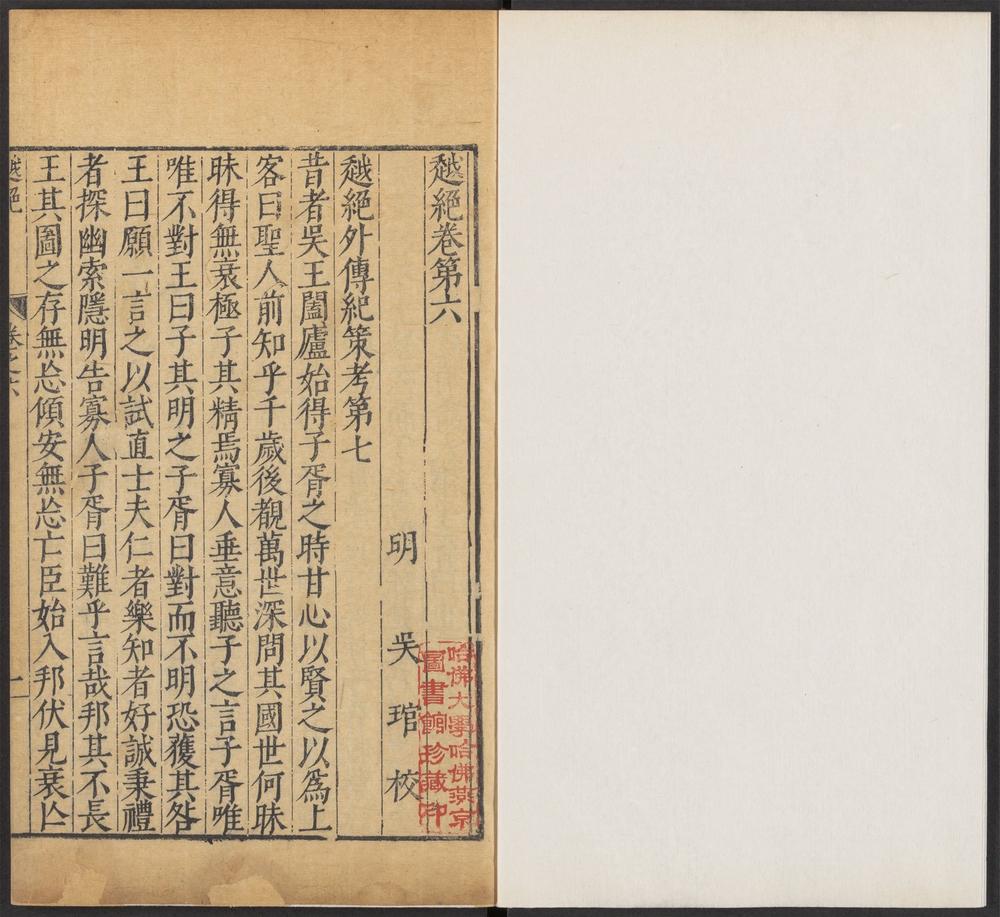 越絕卷第六
明 吳琯校
越絕外傳紀策考第七
昔者吳王闔廬始得子胥之時甘心以賢之以為上
客曰聖人前知乎千歲後覩萬世深問其國世何昧
昧得無衰極子其精焉寡人垂意聽子之言子胥唯
唯不對王曰子其明之子胥曰對而不明恐獲其咎
王曰願一言之以試直士夫仁者樂知者好誠秉禮
者探幽索隱明告寡人子胥曰難乎言哉邦其不長
王其圖之存無忘傾安無忘亡臣始入邦伏見衰亡
越絕 卷之六 一
哈佛大學哈佛燕京
圖書館珍藏印